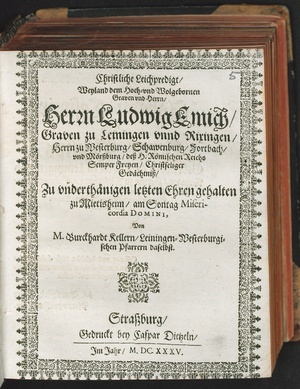 5
Christliche Leichpredigt/
Weyland dem Hoch- und Wolgebornen
Graven und Herrn/
Herrn Ludwig Emich/
Graven zu Leiningen unnd Rixingen/
Herrn zu Westerburg/ Schawenburg/ Forbach/
und Mörßburg/ deß H. Römischen Reichs
Semper Freyen/ Christseliger
Gedächtniß/
Zu underthänigen letzten Ehren gehalten
zu Mietisheim/ am Sontag Miseri-
cordia DOMINI,
Von
M. Burckhardt Kellern/ Leiningen-Westerburgi-
schen Pfarrern daselbst.
Straßburg/
Gedruckt bey Caspar Dietzeln/
Im Jahr/ M. DC. XXXV.